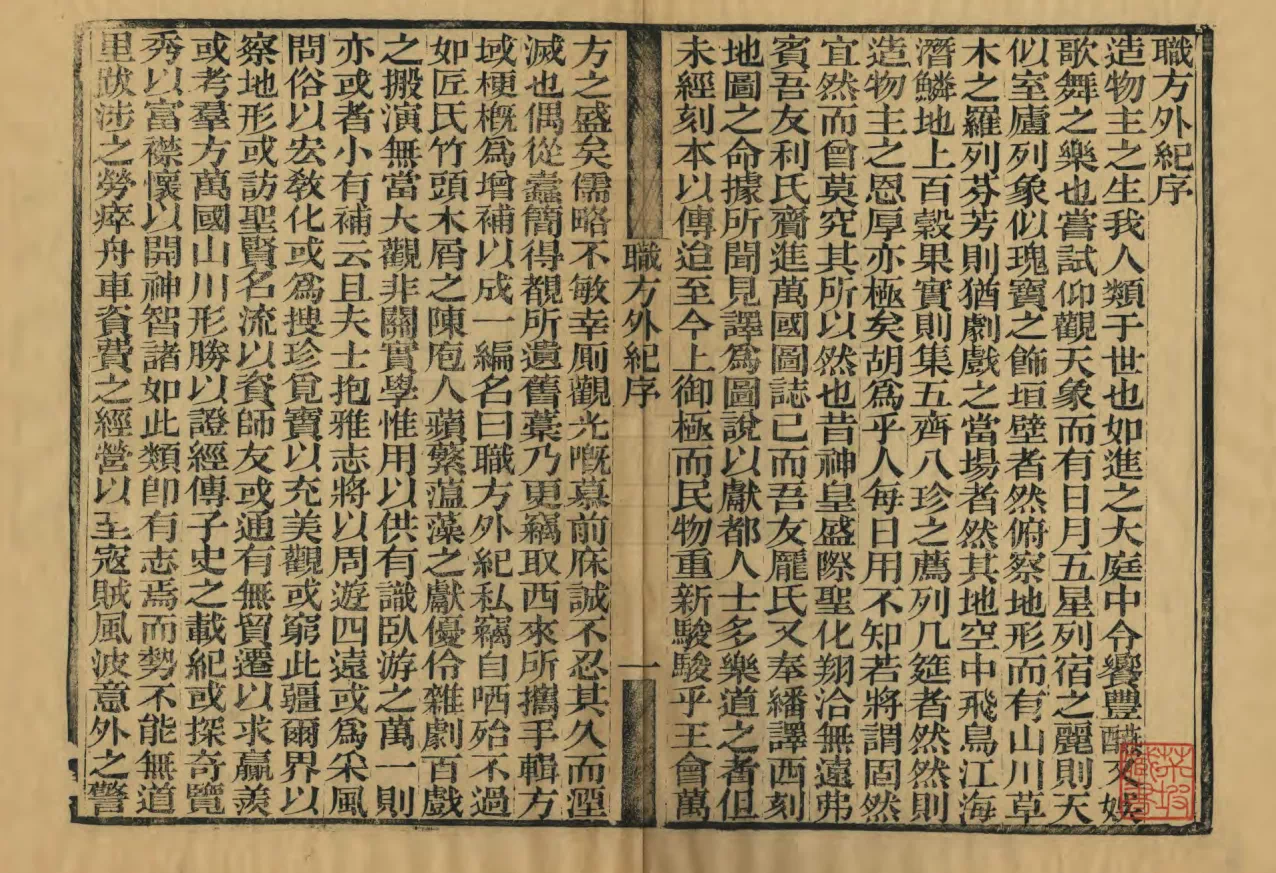 職方外紀序
造物主之生我人類于世也如進之大庭中令饗豐醲又娛
歌舞之樂也嘗試仰觀天象而有日月五星列宿之麗則天
似室廬列象似瑰寶之飾垣壁者然俯察地形而有山川草
木之羅列芬芳則猶劇戲之當場者然其地空中飛鳥江海
潛鱗地上百穀果實則集五齊八珍之薦列几筵者然然則
造物主之恩厚亦極矣胡爲乎人每日用不知若將謂固然
宜然而曾莫究其所以然也昔神皇盛際聖化翔洽無遠弗
賓吾友利氏齎進萬國圖誌已而吾友龐氏又奉繙譯西刻
地圖之命據所聞見譯爲圖說以獻都人士多樂道之者但
未經刻本以傳迨至今上御極而民物重新駸駸乎王會萬
職方外紀序
一
方之盛矣儒略不敏幸厠觀光嘅慕前庥誠不忍其久而湮
滅也偶從蠹簡得覩所遺舊藁乃更竊取西來所攜手輯方
域梗槪爲增補以成一編名曰職方外紀私竊自哂殆不過
如匠氏竹頭木屑之陳庖人蘋蘩薀藻之獻優伶雜劇百戲
之搬演無當大觀非關實學惟用以供有識臥游之萬一則
亦或者小有補云且夫士抱雅志將以周遊四遠或爲采風
問俗以宏敎化或爲搜珍覓寶以充美觀或窮此疆爾界以
察地形或訪聖賢名流以資師友或通有無貿遷以求贏羨
或考羣方萬國山川形勝以證經傳子史之載紀或探奇覽
秀以富襟懷以開神智諸如此類卽有志焉而勢不能無道
里跋涉之勞瘁舟車資費之經營以至寇賊風波意外之警